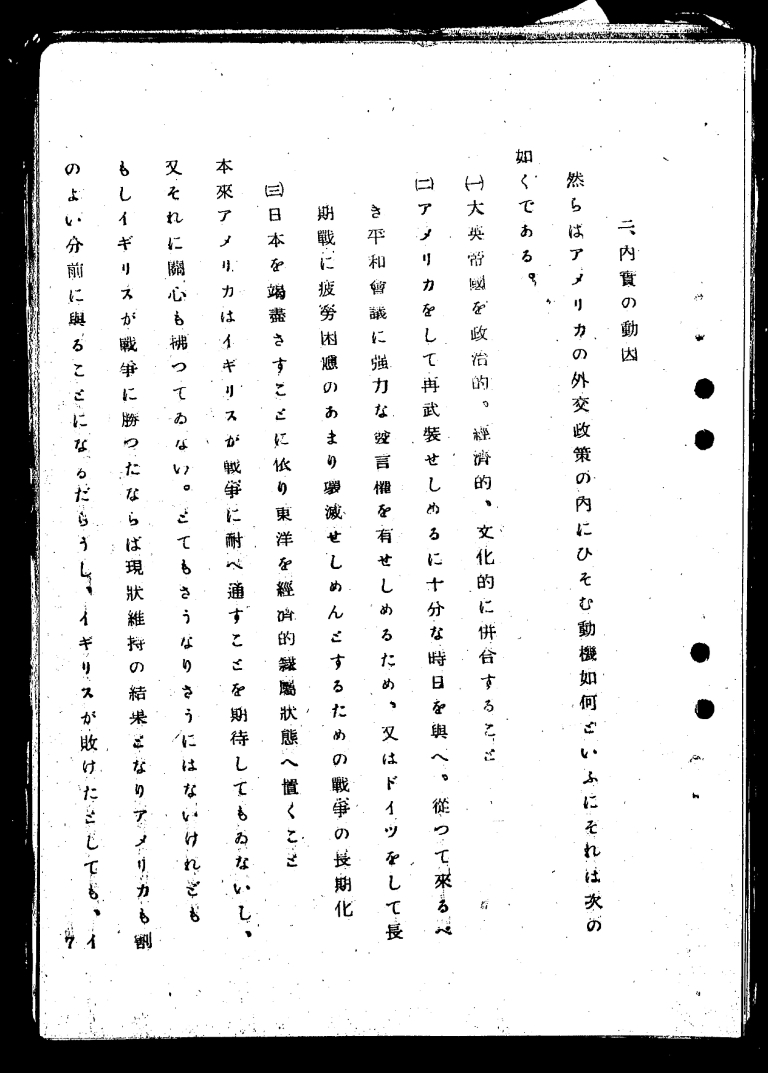 二、内實の動因
然らはアメリカの外交政策の内にひそむ動機如何といふにそれは次の
如くである。
㈠大英帝國を政治的。經濟的、文化的に併合すること
㈡アメリカをして再武裝せしめるに十分な時日を與へ。從つて來るべ
き平和會議に強力な發言權を有せしめるため、又はドイツをして長
期戰に疲勞困憊のあまり壞滅せしめんとするための戰爭の長期化
㈢日本を竭盡さすことに依り東洋を經濟的隸屬狀態へ置くこと
本來アメリカはイギリスが戰爭に耐へ通すことを期待してもゐないし、
又それに關心も拂つてゐない。とてもさうなりさうにはないけれども
もしイギリスが戰爭に勝つたならば現狀維持の結果となりアメリカも割
のよい分前に與ることになるだらうし、イギリスが敗けたとしても、イ
7